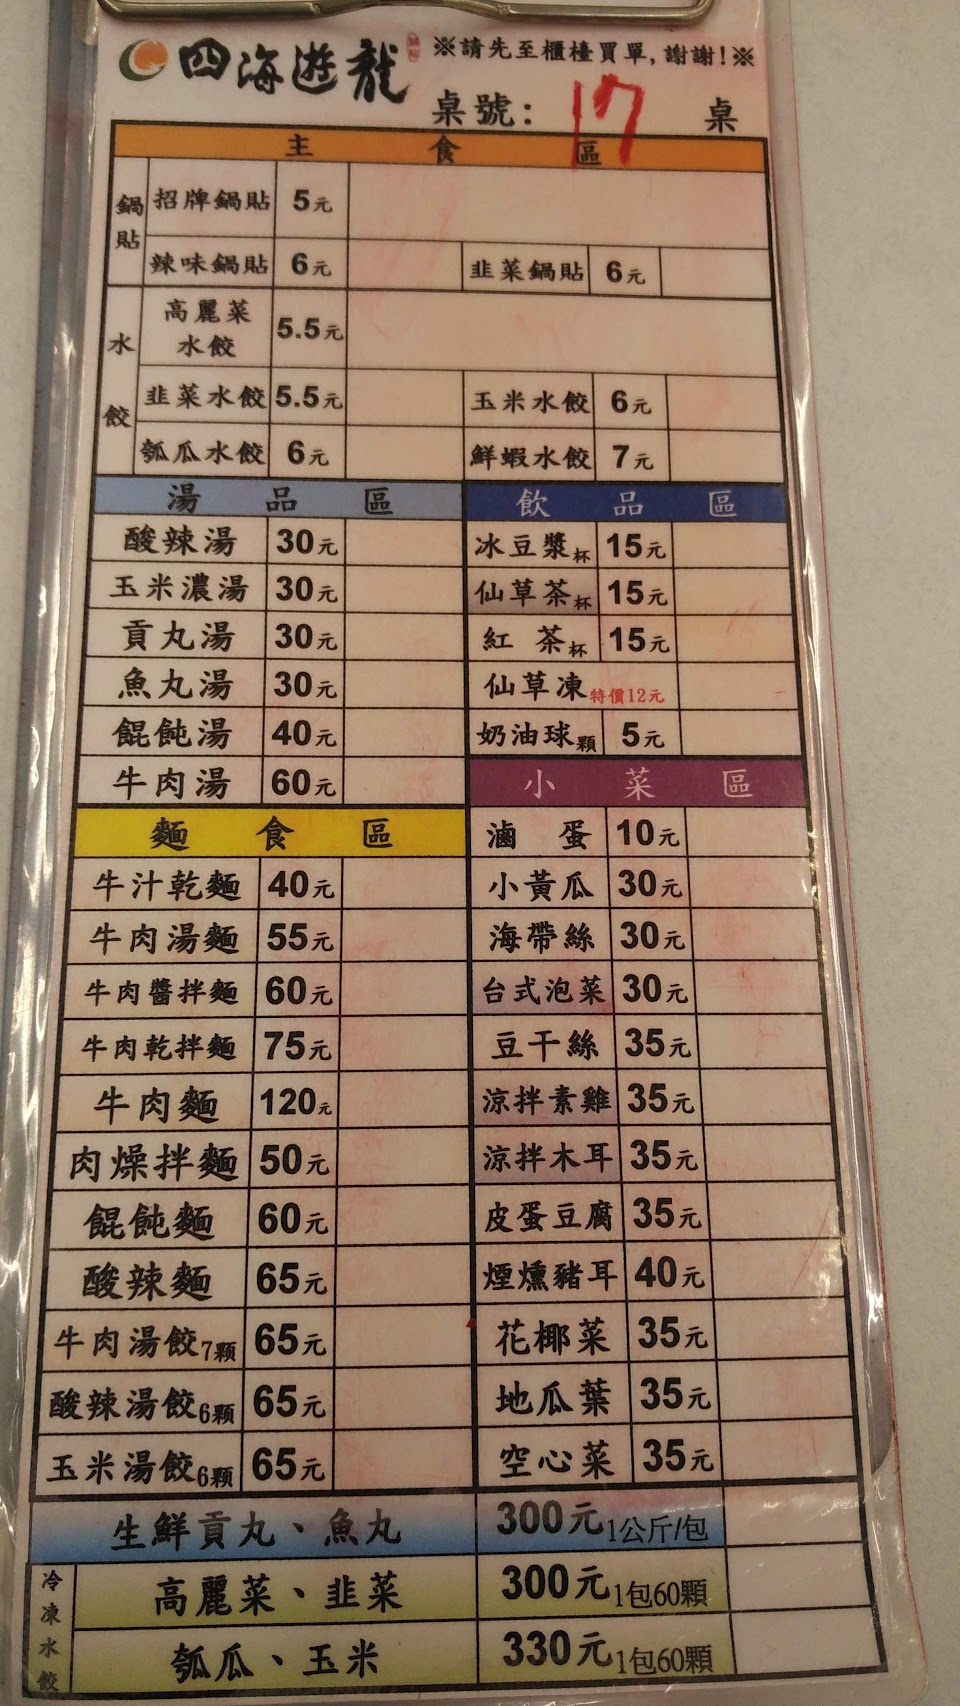 四海遊龍 鍋貼 ※請先至櫃檯買單,謝謝!※
桌號: 17 桌
主食區
鍋貼
招牌鍋貼 5元
辣味鍋貼 6元 韭菜鍋貼 6元
水餃
高麗菜水餃 5.5元
韭菜水餃 5.5元 玉米水餃 6元
瓠瓜水餃 6元 鮮蝦水餃 7元
湯品區
酸辣湯 30元
玉米濃湯 30元
貢丸湯 30元
魚丸湯 30元
餛飩湯 40元
牛肉湯 60元
飲品區
冰豆漿杯 15元
仙草茶杯 15元
紅茶杯 15元
仙草凍 特價12元
奶油球顆 5元
麵食區
牛汁乾麵 40元
牛肉湯麵 55元
牛肉醬拌麵 60元
牛肉乾拌麵 75元
牛肉麵 120元
肉燥拌麵 50元
餛飩麵 60元
酸辣麵 65元
牛肉湯餃7顆 65元
酸辣湯餃6顆 65元
玉米湯餃6顆 65元
小菜區
滷蛋 10元
小黃瓜 30元
海帶絲 30元
台式泡菜 30元
豆干絲 35元
涼拌素雞 35元
涼拌木耳 35元
皮蛋豆腐 35元
煙燻豬耳 40元
花椰菜 35元
地瓜葉 35元
空心菜 35元
生鮮貢丸、魚丸 300元 1公斤/包
冷凍水餃
高麗菜、韭菜 300元 1包60顆
瓠瓜、玉米 330元 1包60顆